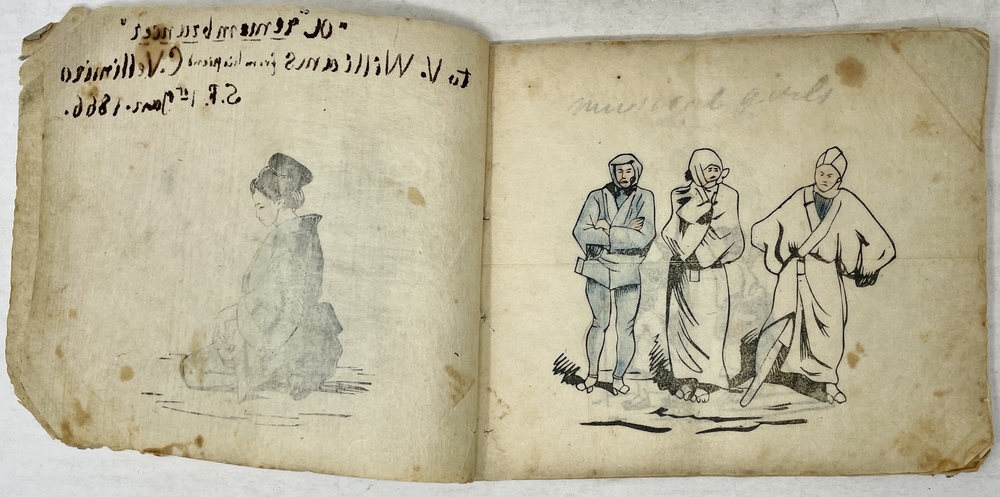 "A remembrancer"
to V. Williams from his friend C. Vellimiro
S.F. 1st Jan. 1866.
musical girls